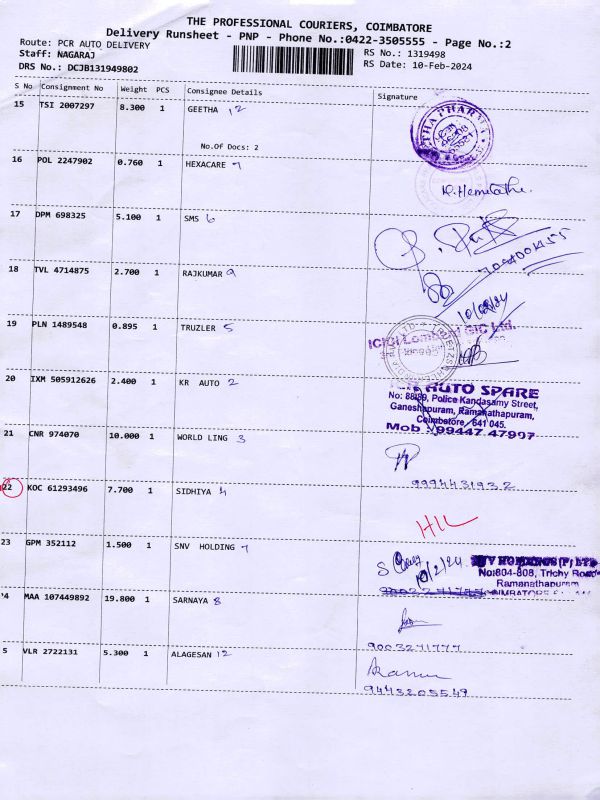 THE PROFESSIONAL COURIERS, COIMBATORE
Delivery Runsheet - PNP - Phone No.:0422-3505555 - Page No.:2
Route: PCR AUTO DELIVERY
Staff: NAGARAJ
RS No.: 1319498
DRS No.: DCJB131949802
RS Date: 10-Feb-2024
S No Consignment No Weight PCS Consignee Details Signature
15 TSI 2007297 8.300 1 GEETHA 12
No.Of Docs: 2
16 POL 2247902 0.760 1 HEXACARE 7
R.Hemalathe.
17 DPM 698325 5.100 1 SMS 6
18 TVL 4714875 2.700 1 RAJKUMAR 9
10/02/24
19 PLN 1489548 0.895 1 TRUZLER 5
ICICI Lombard GIC Ltd.
20 IXM 505912626 2.400 1 KR AUTO 2
AUTO SPARE
No: 88/89, Police Kandasamy Street,
Ganeshapuram, Ramanathapuram,
Coimbatore, 641 045.
Mob : 99447 47907
21 CNR 974070 10.000 1 WORLD LING 3
9994431932
22 KOC 61293496 7.700 1 SIDHIYA 4
HIL
23 GPM 352112 1.500 1 SNV HOLDING 7
10/2/24
HOLDINGS (P) LTD
No:804-808, Trichy Road
Ramanathapuram
4 MAA 107449892 19.800 1 SARNAYA 8
9003271777
5 VLR 2722131 5.300 1 ALAGESAN 12
9443205549